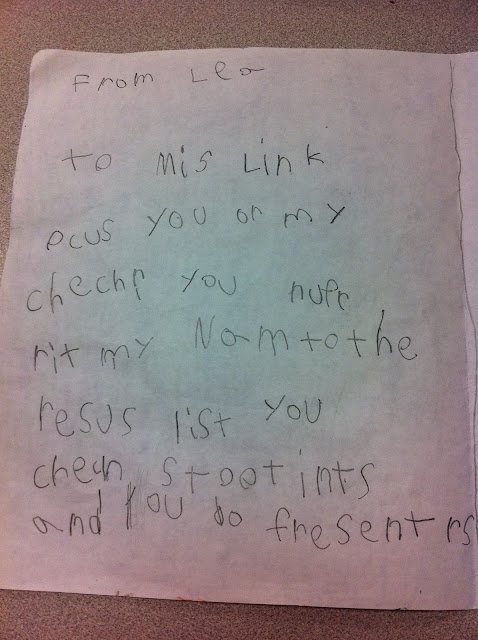 From Leo
to Mis Link
ecus you or my
chechr you nufr
rit my Nam to the
resus list you
chech stootints
and you do fresent rs